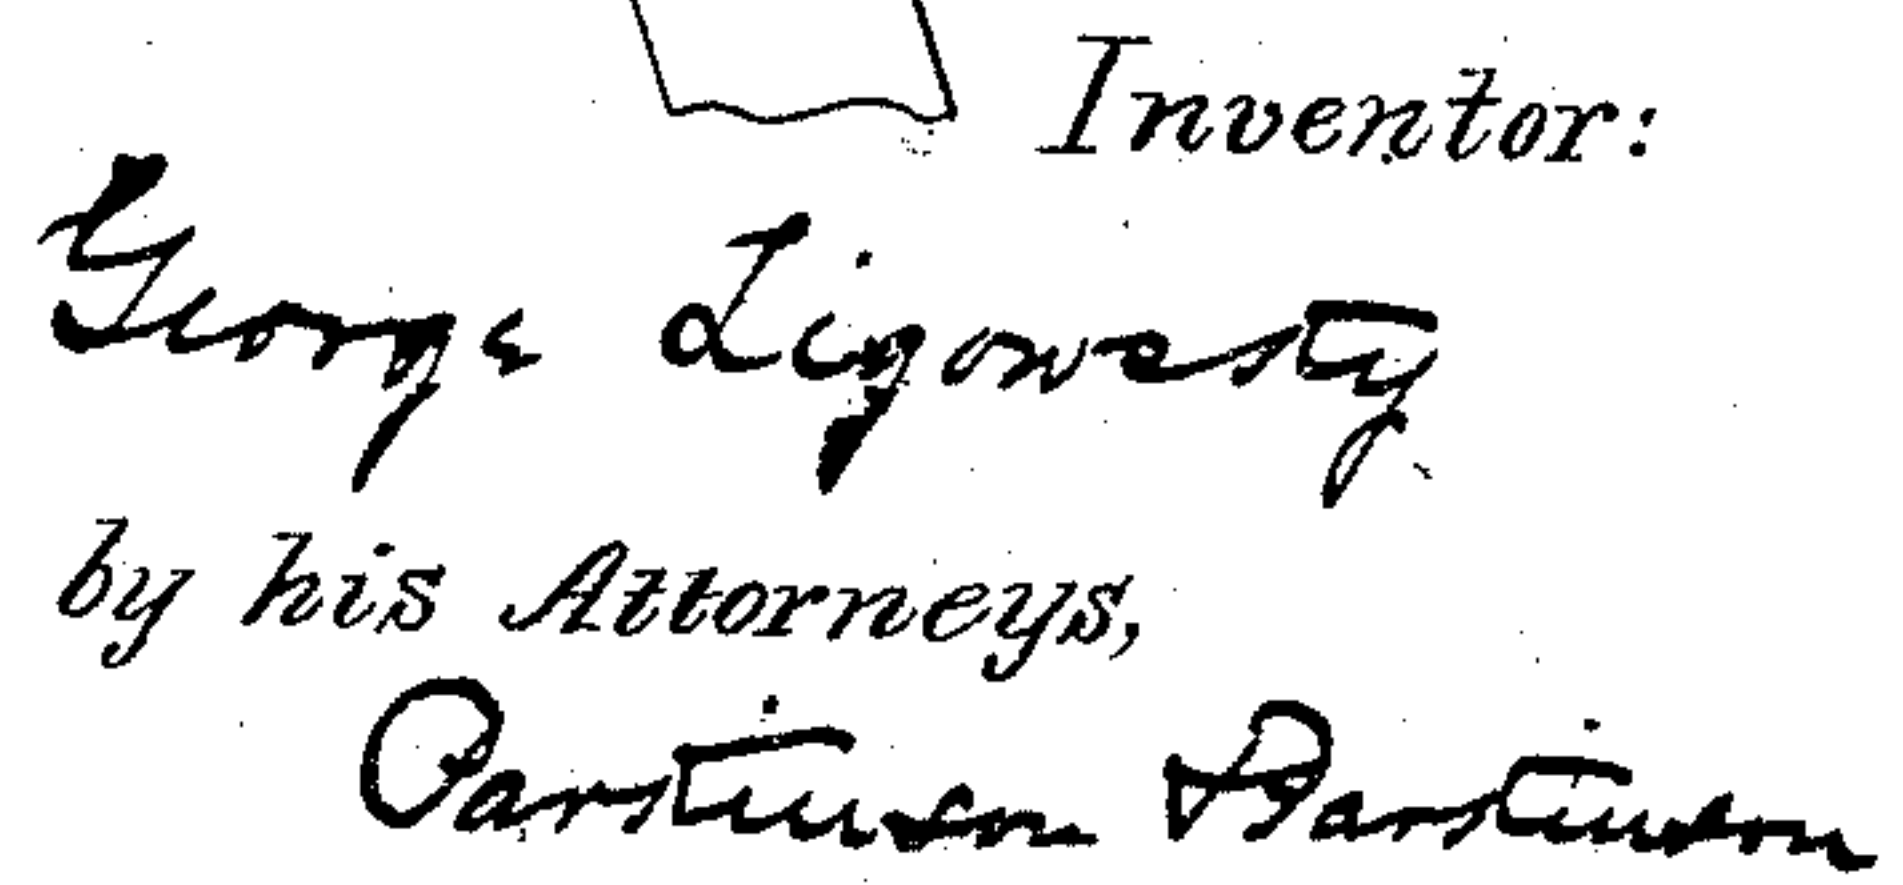 Inventor:
George Ligowsky
by his Attorneys,
Parkinson & Parkinson